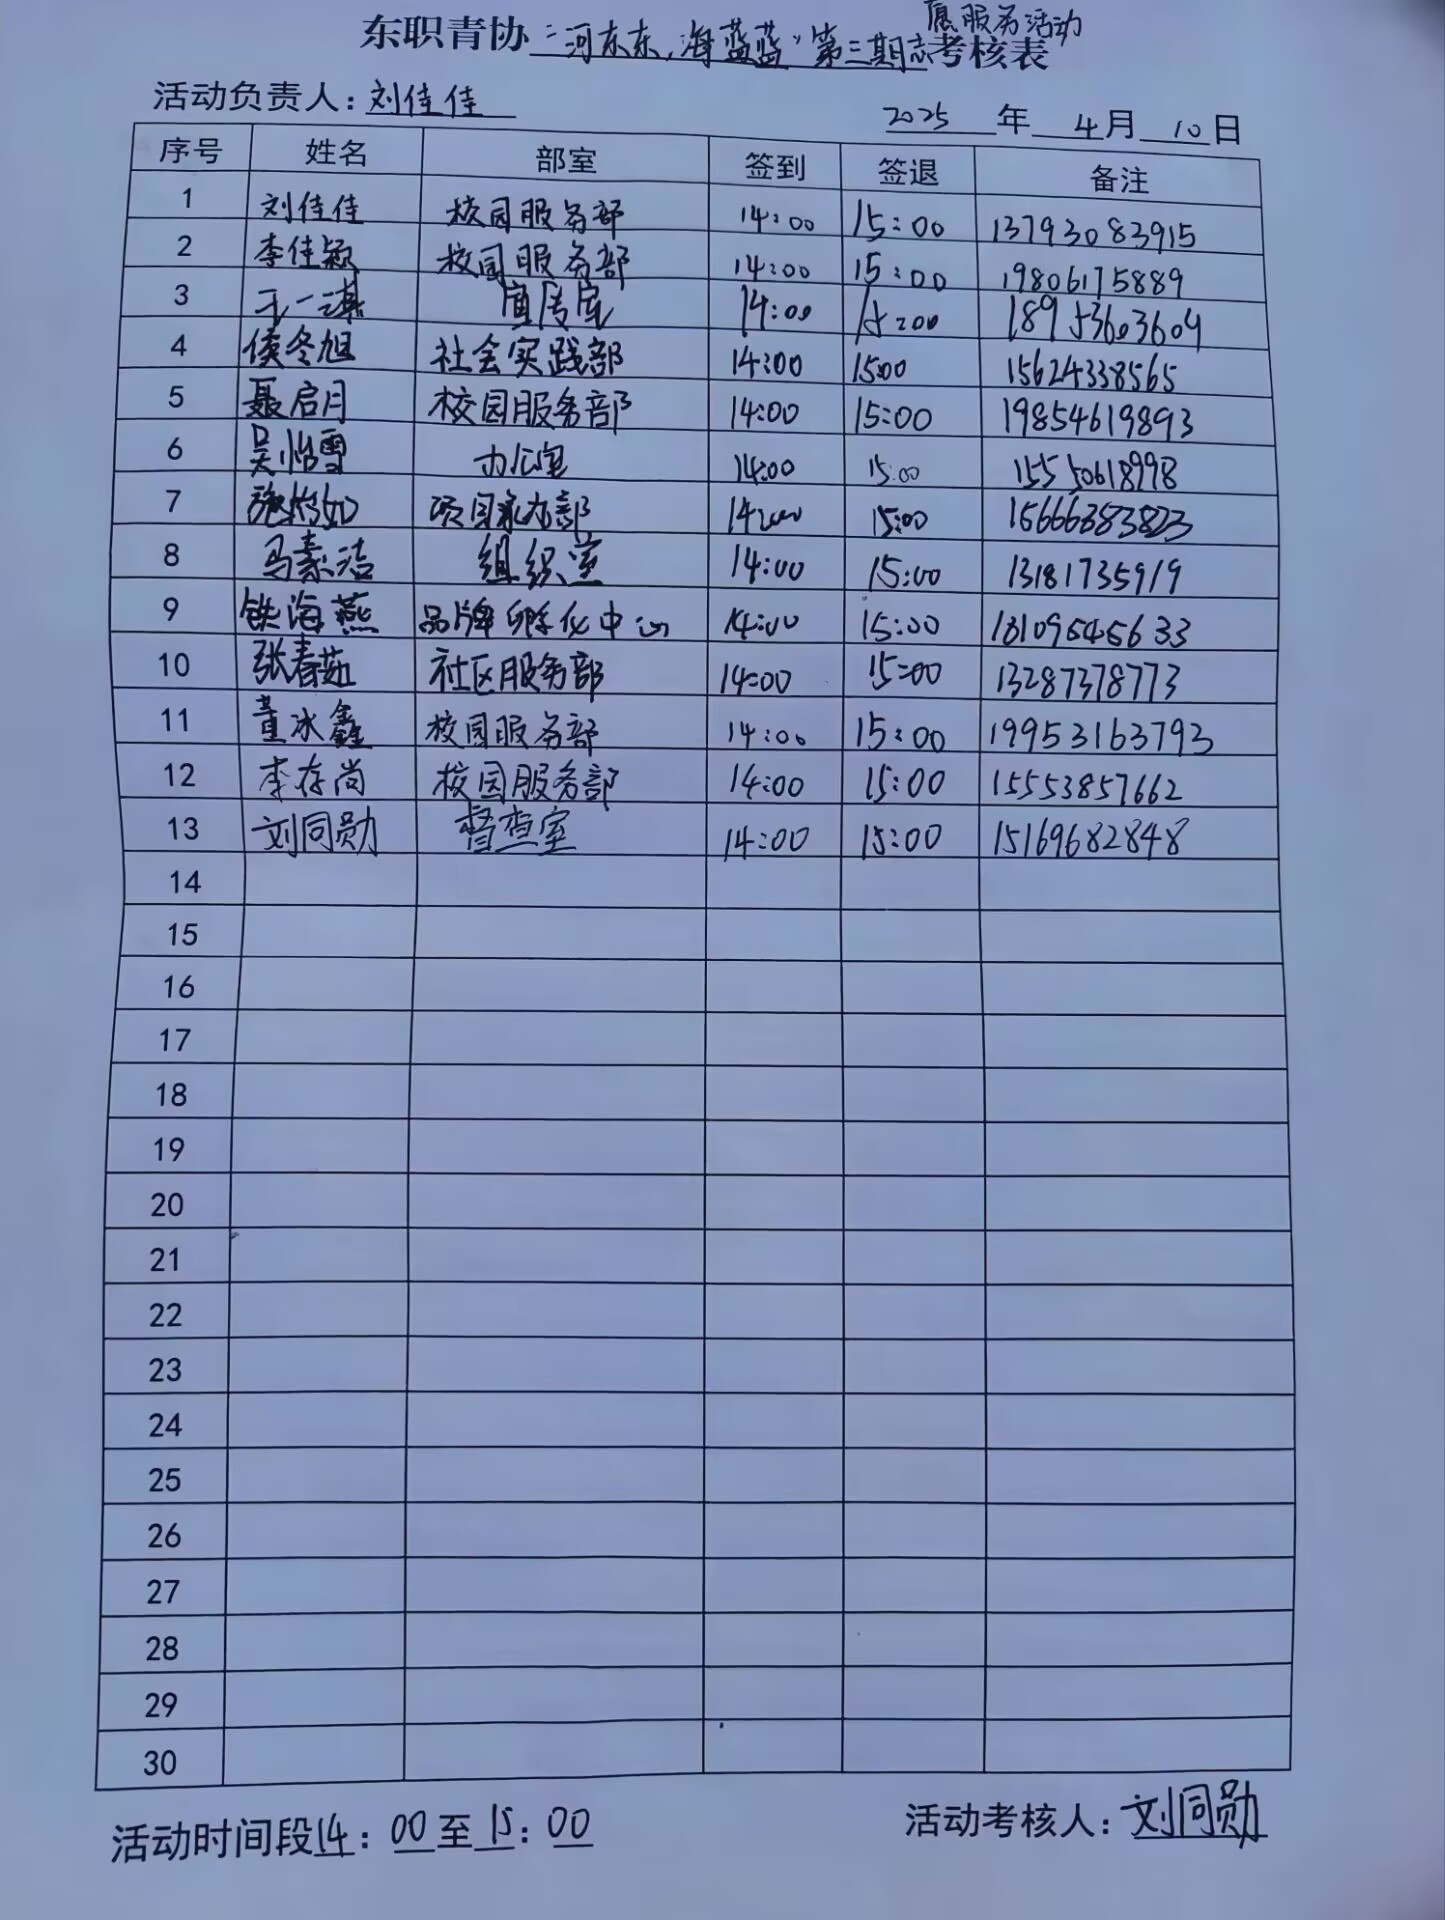 愿服务活动
东职青协“河东东,海蓝蓝”第三期志考核表
活动负责人:刘佳佳
2025年4月10日
序号 姓名 部室 签到 签退 备注
1 刘佳佳 校园服务部 14:00 15:00 13793083915
2 李佳颖 校园服务部 14:00 15:00 19806175889
3 宣传室 14:00 15:00 18953603609
4 侯冬旭 社会实践部 14:00 15:00 15624338565
5 聂启月 校园服务部 14:00 15:00 19854619893
6 吴怡雪 办公室 14:00 15:00 15550618998
7 14:00 15:00
8 马素洁 组织室 14:00 15:00 13181735919
9 铁海燕 品牌孵化中心 14:00 15:00 18109545633
10 张春茹 社区服务部 14:00 15:00 13287378773
11 董冰鑫 校园服务部 14:00 15:00 19953163793
12 李存尚 校园服务部 14:00 15:00 15553857662
13 刘同勋 督查室 14:00 15:00 15169682848
14
15
16
17
18
19
20
21
22
23
24
25
26
27
28
29
30
活动时间段14:00至15:00 活动考核人:刘同勋